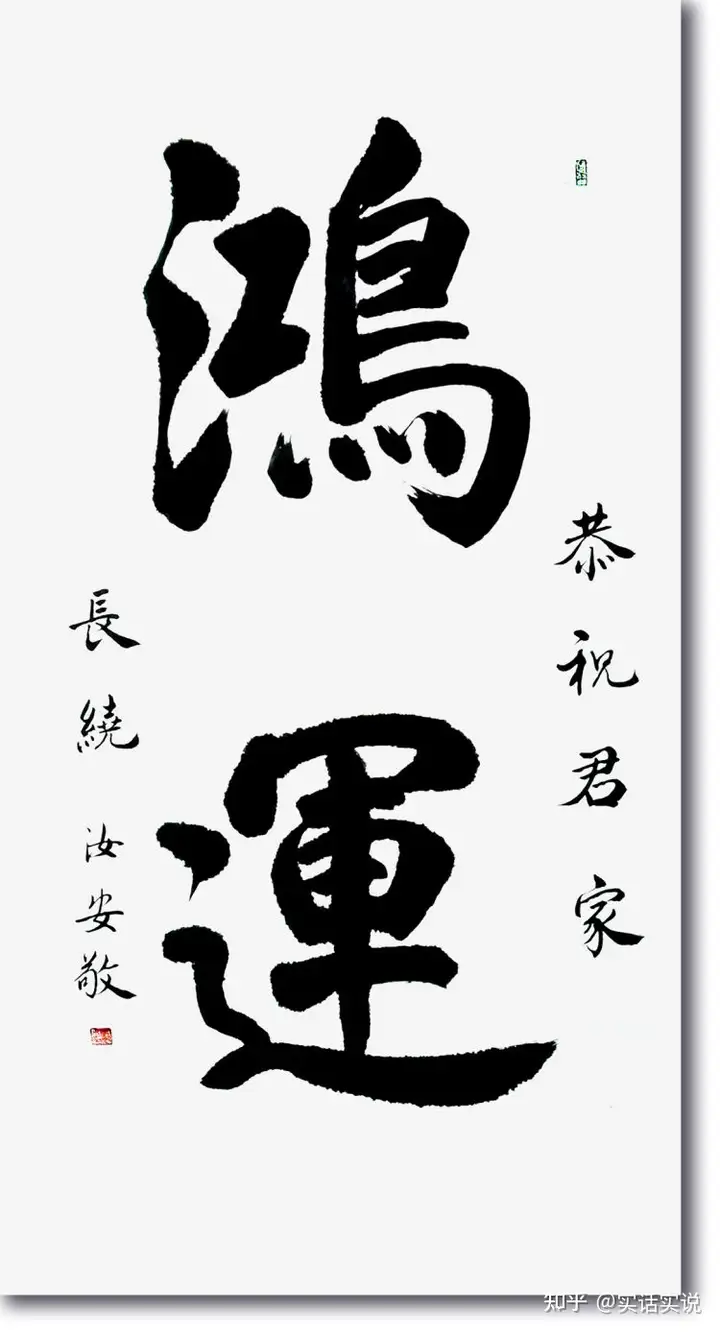 恭祝君家
鴻運
長繞 汝安敬
知乎 @实话实说